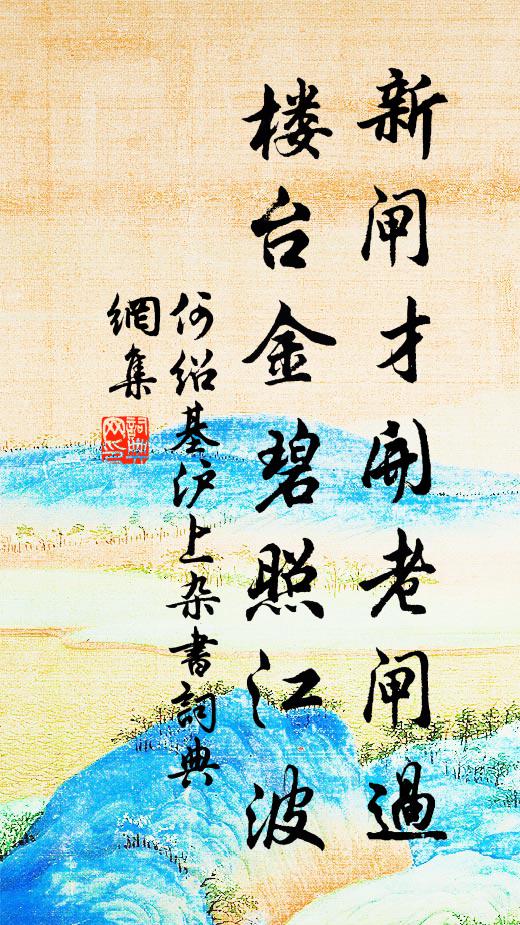 新闸才開老闸過
楼台金碧照江波
何绍基沪上杂書詞典
網集
詞典網